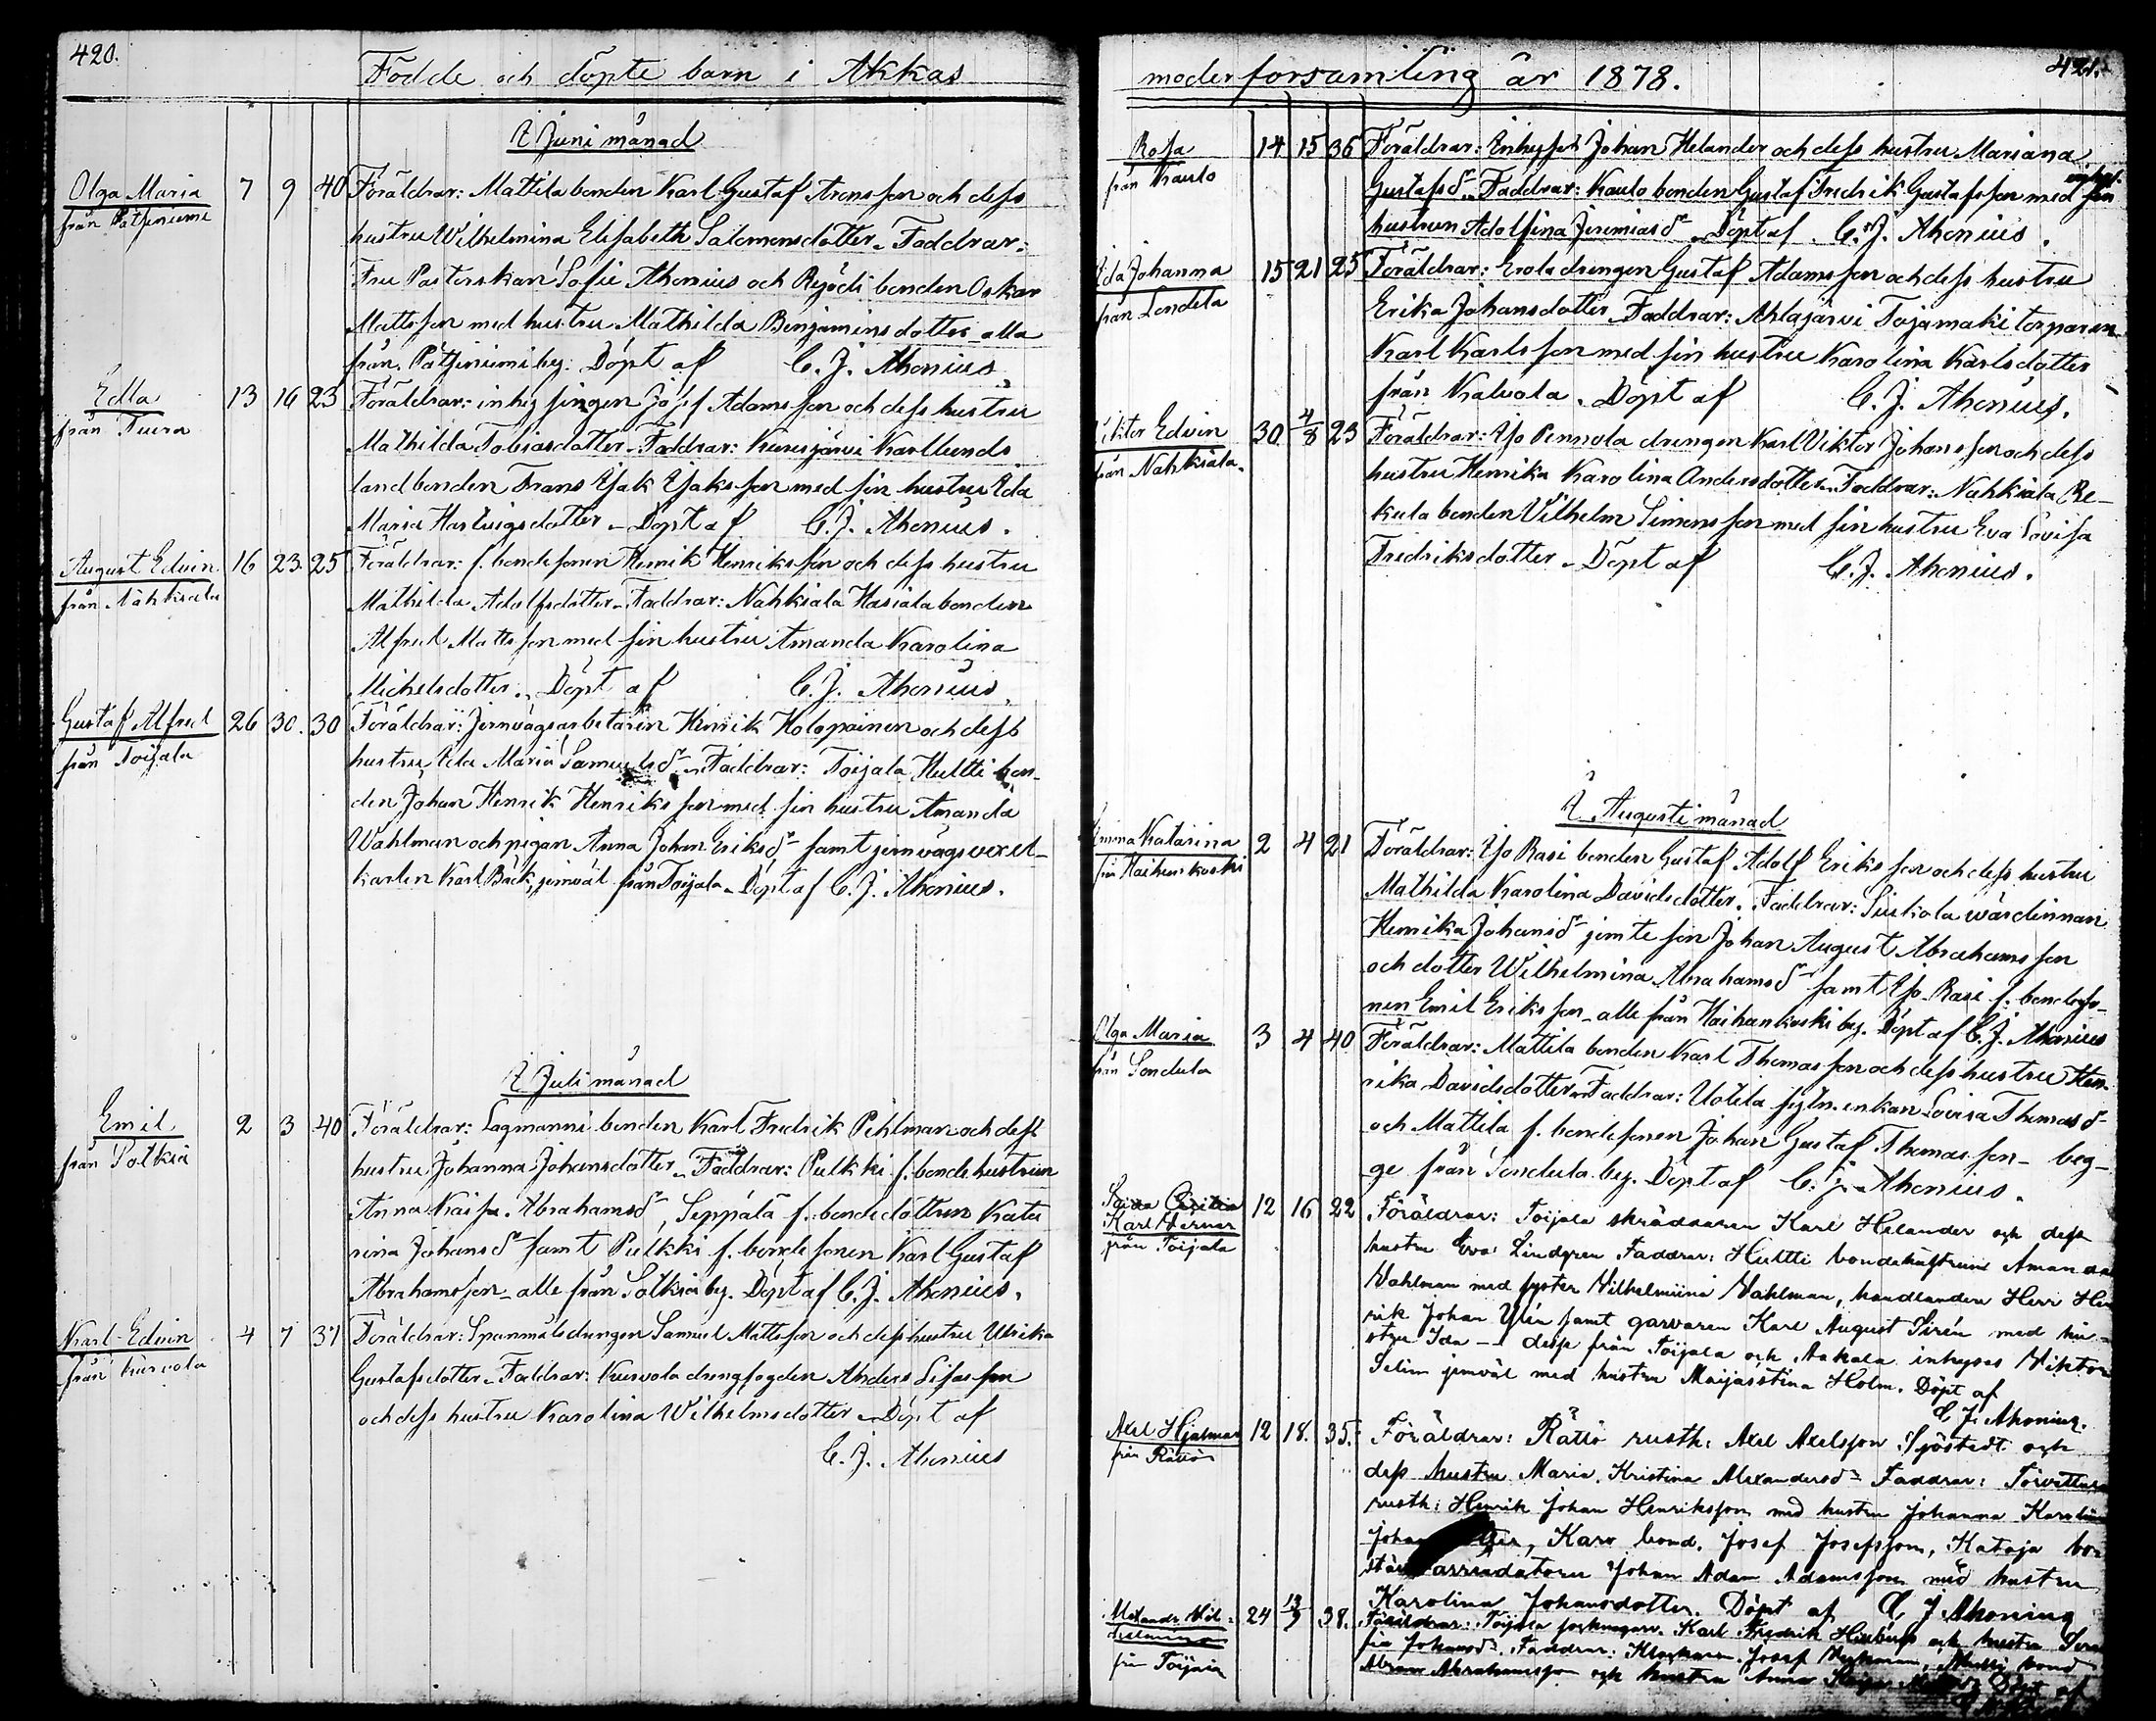 420.
Födde och döpte barn i Akkas
I Juni månad
Olga Maria 7 9 40 Föräldrar: Mattila bonden Karl Gustaf Aronsson och dess
från
hustru Wilhelmina Elisabeth Salomonsdotter. Faddrar:
Fru Pastorskan Sofie Ahonius och bonden Oskar
Mattsson med hustru Mathilda Benjaminsdotter alla
från by. Döpt af C. J. Ahonius
Edla 13 16 23 Föräldrar: inhysingen Josef Adamsson och dess hustru
från
Mathilda Tobiasdotter. Faddrar: Kurisjärvi Karllunds
landbonden Frans Isak Isaksson med sin hustru Ida
Maria Hartvigsdotter. Döpt af C. J. Ahonius.
August Edvin 16 23. 25 Föräldrar: f. bondesonen Henrik Henriksson och dess hustru
från Nahkiala
Mathilda Adolfsdotter. Faddrar: Nahkiala bonden
Alfred Mattsson med sin hustru Amanda Karolina
Michelsdotter. Döpt af C. J. Ahonius
Gustaf Alfred 26 30. 30 Föräldrar: Jernvägsarbetaren Henrik Holopainen och dess
från Toijala
hustru Ida Maria Samuelsdr. Faddrar: Toijala Hultti bon-
den Johan Henrik Henriksson med sin hustru Amanda
Wahlman och pigan Anna Johan Eriksdr samt jernvägsvexel-
karlen Karl Bäck, jemväl från Toijala. Döpt af C. J. Ahonius.
I Juli månad
Emil 2 3 40 Föräldrar: Lagmanni bonden Karl Fredrik Pihlman och dess
från Sotkia
hustru Johanna Johansdotter. Faddrar: Pulkki f. bondehustrun
Anna Kaisa Abrahamsdr, Seppälä f. bondedottren Kata
rina Johansdr samt Pulkki f. bondesonen Karl Gustaf
Abrahamsson alle från Sotkia by. Döpt af C. J. Ahonius.
Karl Edvin 4 7 37 Föräldrar: Spanmålsdrengen Samuel Mattsson och dess hustru Ulrika
från Kurvola
Gustafsdotter. Faddrar: Kurvola drengfogden Anders
och dess hustru Karolina Wilhelmsdotter. Döpt af
C. J. Ahonius
421.
moderforsamling år 1878.
Rosa 14 15 36 Föräldrar: Johan Helander och dess hustru Mariana
från Kaulo
Gustafsdr. Faddrar: Kaulo bonden Gustaf Fredrik Gustafsson med sin
hustrun Adolfina Jeremiasdr. Döpt af C. J. Ahonius.
Ida Johanna 15 21 25 Föräldrar: Erola drengen Gustaf Adamsson och dess hustru
från
Erika Johansdotter. Faddrar: Ahlajärvi torparen
Karl Karlsson med sin hustru Karolina Karlsdotter
från Kalvola. Döpt af C. J. Ahonius.
Viktor Edvin 30 4/8 23 Föräldrar: Iso Pennola drengen Karl Viktor Johansson och dess
från Nahkiala.
hustru Henrika Karolina Andersdotter. Faddrar: Nahkiala Re-
kula bonden Vilhelm Simonsson med sin hustru Eva Lovisa
Fredriksdotter. Döpt af C. J. Ahonius.
I Augusti månad
Katarina 2 4 21 Föräldrar: Iso Rasi bonden Gustaf Adolf Eriksson och dess hustru
från Haihunkoski
Mathilda Karolina Davidsdotter. Faddrar: Siukola värdinnan
Henrika Johansdr jemte son Johan August Abrahamsson
och dotter Wilhelmina Abrahamsdr samt Iso Rasi f. bondeso-
nen Emil Eriksson alle från Haihunkoski by. Döpt af C. J. Ahonius
Olga Maria 3 4 40 Föräldrar: Mattila bonden Karl Thomasson och dess hustru Hen-
från Sondula
rika Davidsdotter. Faddrar: Uotila enkan Lovisa Thomasdr
och Mattila f. bondesonen Johan Gustaf Thomasson beg-
ge från Sondula by. Döpt af C. J. Ahonius.
Karl Verner 12 16 22 Föräldrar: Toijala skräddaren Karl Helander och dess
från Toijala
hustru Eva Lindgren Faddrar: Hultti bondehustrun Amanda
Vahlman med syster Vilhelmiina Vahlman, handlanden Herr Hen
rik Johan Ylén samt garvaren Karl August Sirén med hu-
stru Ida — desse från Toijala och Aakala inhyses Viktor
Selin jemväl med hustru Maijastina Holm. Döpt af
C J. Ahonius.
Axel Hjalmar 12 18. 35. Föräldrar: Rättö rusth. Axel Axelsson Sjöstedt och
från Rättö
dess hustru Maria Kristina Alexandersdr Faddrar:
rusth: Henrik Johan Henriksson med hustru Johanna Karolina
Karo bond. Josef Josefsson, Kataja
arrendatorn Johan Adam Adamsson med hustru
Karolina Johansdotter. Döpt af C J Ahonius
24 13/9 38. Föräldrar: Toijala Karl Fredrik och hustru
från Toijala
Johansdr. Faddrar: Klockaren Josef bond
Abrahamsson och hustru Anna Döpt af